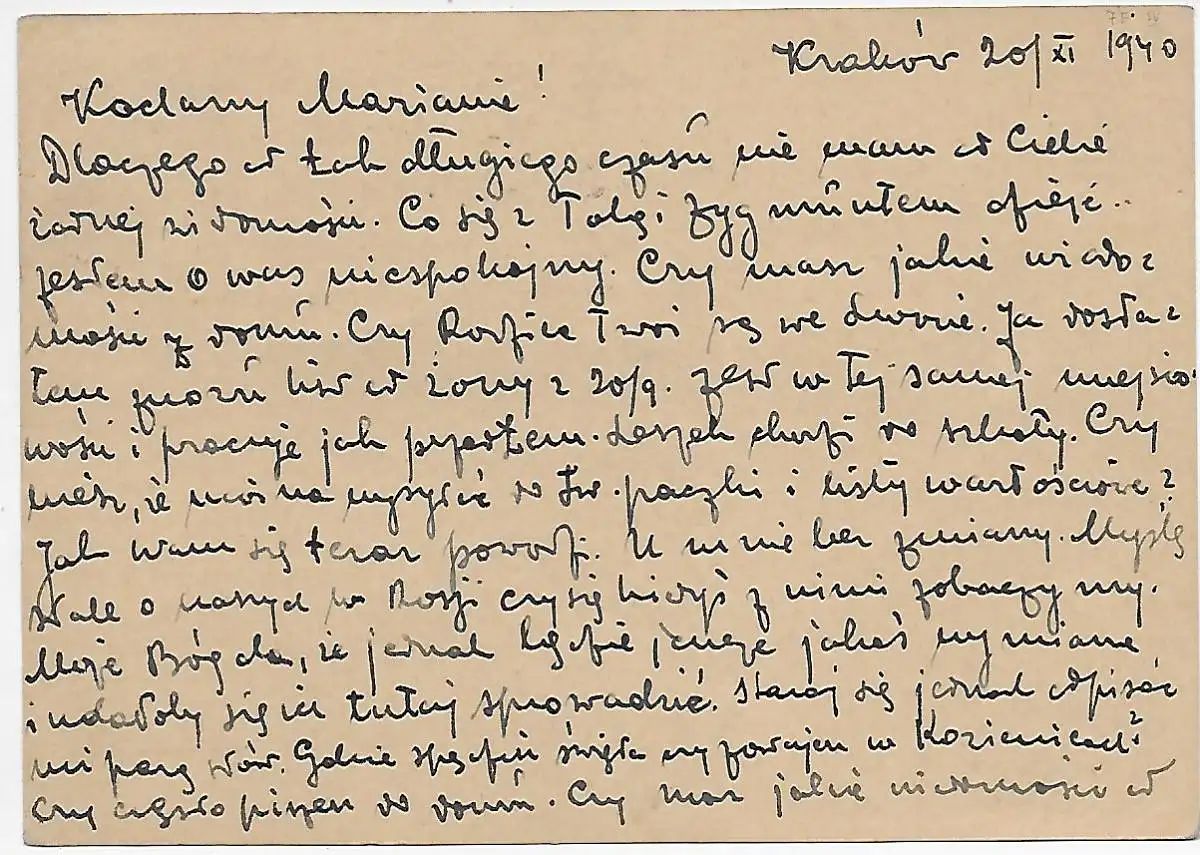 Kraków 20/XI 1940
Kochany Marianie!
Dlaczego od tak długiego czasu nie mam od Ciebie
żadnej wiadomości. Co się z Tobą i Zygmuntem dzieje..
Jestem o was niespokojny. Czy masz jakie wiado=
mości z domu. Czy Rodzice Twoi są we Lwowie. Ja dosta=
łem znowu list od żony z 20/9. Jest w tej samej miejsco-
wości i pracuje jak przedtem. Leszek chodzi do szkoły. Czy
wiesz, że można wysyłać do Lw. paczki i listy wartościowe?
Jak wam się teraz powodzi. U mnie bez zmiany. Myślę
stale o naszych w Rosji czy się kiedyś z nimi zobaczymy.
Może Bóg da, że jednak będzie jeszcze jakaś wymiana
i udałoby się ich tutaj sprowadzić. Staraj się jednak odpisać
mi parę słów. Gdzie spędziłeś święta czy zostajesz w Kozienicach?
Czy często piszesz do domu. Czy masz jakie wiadomości od